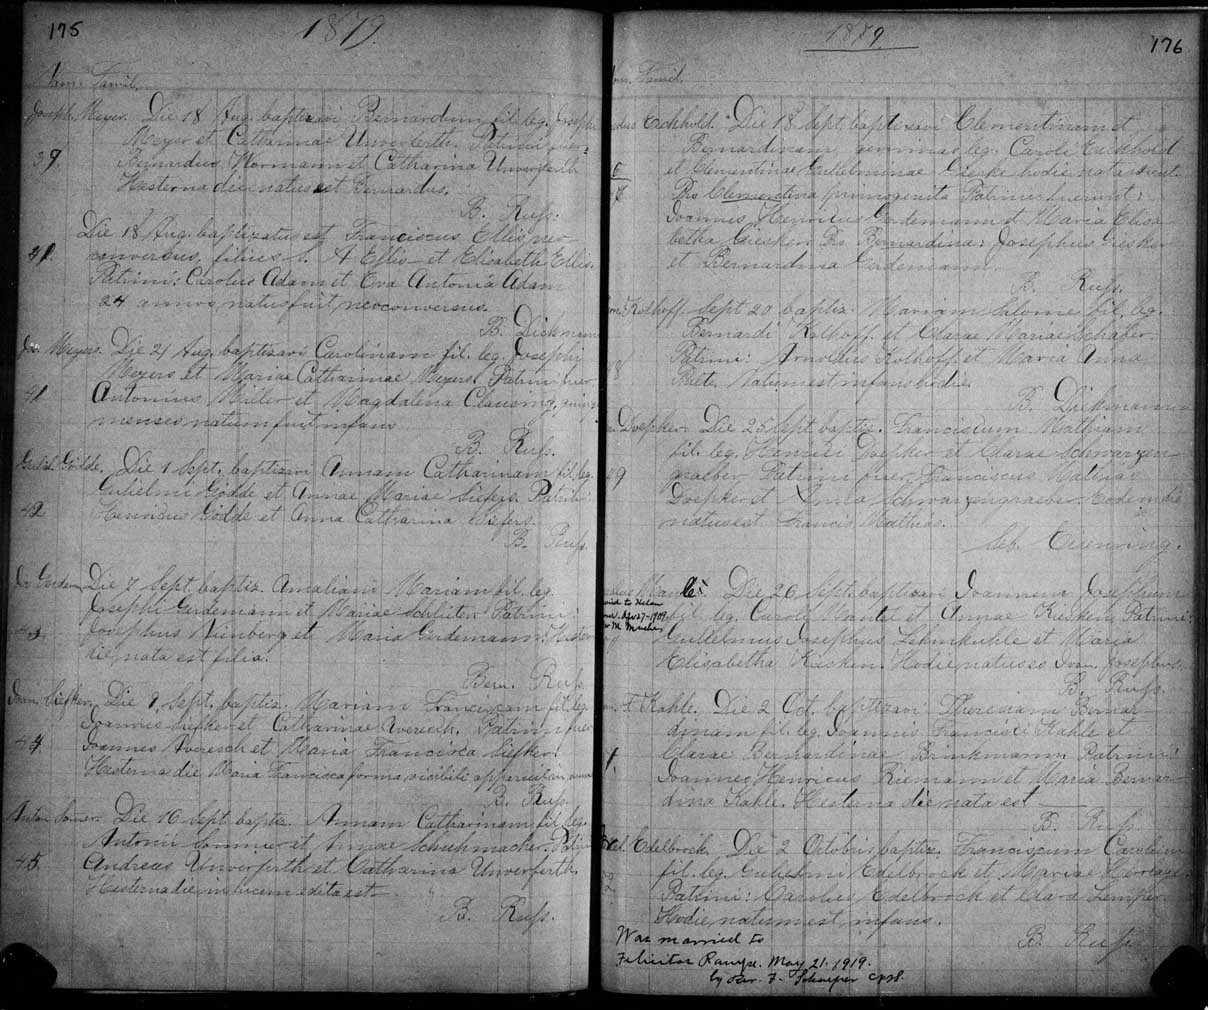 175
1879.
Nam. Famil.
Joseph Meyer. Die 18 Aug. baptizavi Bernardum fil. leg. Josephi
Meyer et Catharinae Unverferth. Patrini fuer:
39 Bernardus Hormann et Catharina Unverferth
Hesterna die natus est Bernardus.
B. Russ.
Die 18 Aug. baptizatus est Franciscus Ellis, neo-
41. conversus, filius l. A Ellis et Elisabeth Ellis.
Patrini: Carolus Adam et Eva Antonia Adam
24 annos natus fuit, neoconversus.
B. Dickmann
Jos. Meyers. Die 21 Aug. baptizavi Carolinam fil. leg. Josephi
Meyers et Mariae Catharinae Meyers. Patrini fuer.
41 Antonius Miller et Magdalena Clausing,
menses natum fuit infans
B. Russ.
Gulil. Gödde. Die 1 Sept. baptizavi Annam Catharinam fil. leg.
Gulielmi Gödde et Annae Mariae Siefers. Patrini:
42 Henricus Gödde et Anna Catharina Siefers.
B. Russ.
Jos Gerdeman Die 7 Sept. baptiz. Amaliam Mariam fil. leg.
Josephi Gerdemann et Mariae Schlüter Patrini:
43 Josephus Nienberg et Maria Gerdemann. Hestern
die nata est filia.
Bern. Russ
Joan. Siefker. Die 9 Sept. baptiz. Mariam Franciscam fil. leg.
Joannis Siefker et Catharinae Averesch. Patrini fuer
44. Joannes Averesch et Maria Francisca Siefker.
Hesterna die Maria Francisca forma visibili apparuit in
B. Russ.
Anton Somer. Die 16 Sept. baptiz. Annam Catharinam fil. leg.
Antonii Sommer et Annae Schuhmacher. Patrini
45. Andreas Unverferth et Catharina Unverferth.
Hesterna die in lucem edita est.
B. Russ.
1879.
176
Nam. Famil.
Eickholt. Die 18 Sept. baptizavi Clementinam et
Bernardinam, gemmas leg. Caroli Eickholt
6 et Clementinae Gulielminae Gieske hodie natae sunt.
47 Pro Clementina primogenita Patrini fuerunt:
Joannes Henricus Gerdemann et Maria Elisa-
betha Giesken Pro Bernardina: Josephus Giesken
et Bernardina Gerdemann.
B. Russ.
Kolhoff. Sept 20 baptiz. Mariam Salome fil. leg.
Bernardi Kolhoff et Clarae Mariae Schaber
48 Patrini: Arnoldus Kolhoff et Maria Anna
Natum est infans hodie.
B. Dickmann
Doepker. Die 25 Sept. baptiz. Franciscum Mathiam
fil. leg. Henrici Doepker et Clarae Schwarzen-
49 graeber. Patrini fuer. Franciscus Mathias
Doepker et Anna Schwarzengraeber. Eodem die
natus est Francis. Mathias.
Seb. Ciesering.
Mantel. Die 26 Sept. baptizavi Joannem Josephum
married to Helen
Nov. 27-1909. fil. leg. Caroli Mantel et Annae Kiesken. Patrini:
Gulielmus Josephus Lehmkuhle et Maria
Elisabetha Kiesken. Hodie natus es Joan. Josephus.
B. Russ.
F. Kahle. Die 2 Oct. baptizavi Theresiam Bernar-
dinam fil. leg. Joannis Francisci Kahle et
Clarae Bernardinae Brinkmann. Patrini:
Joannes Henricus Riemann et Maria Bernar-
dina Kahle. Hesterna die nata est
B. Russ.
Edelbrock. Die 2 Octobris baptiz. Franciscum Carolum
fil. leg. Gulielmi Edelbrock et Mariae
Patrini: Carolus Edelbrock et Clara
Hodie natum est infans.
B. Russ
Was married to
May 21. 1919.
by Rev. F. Schaefer